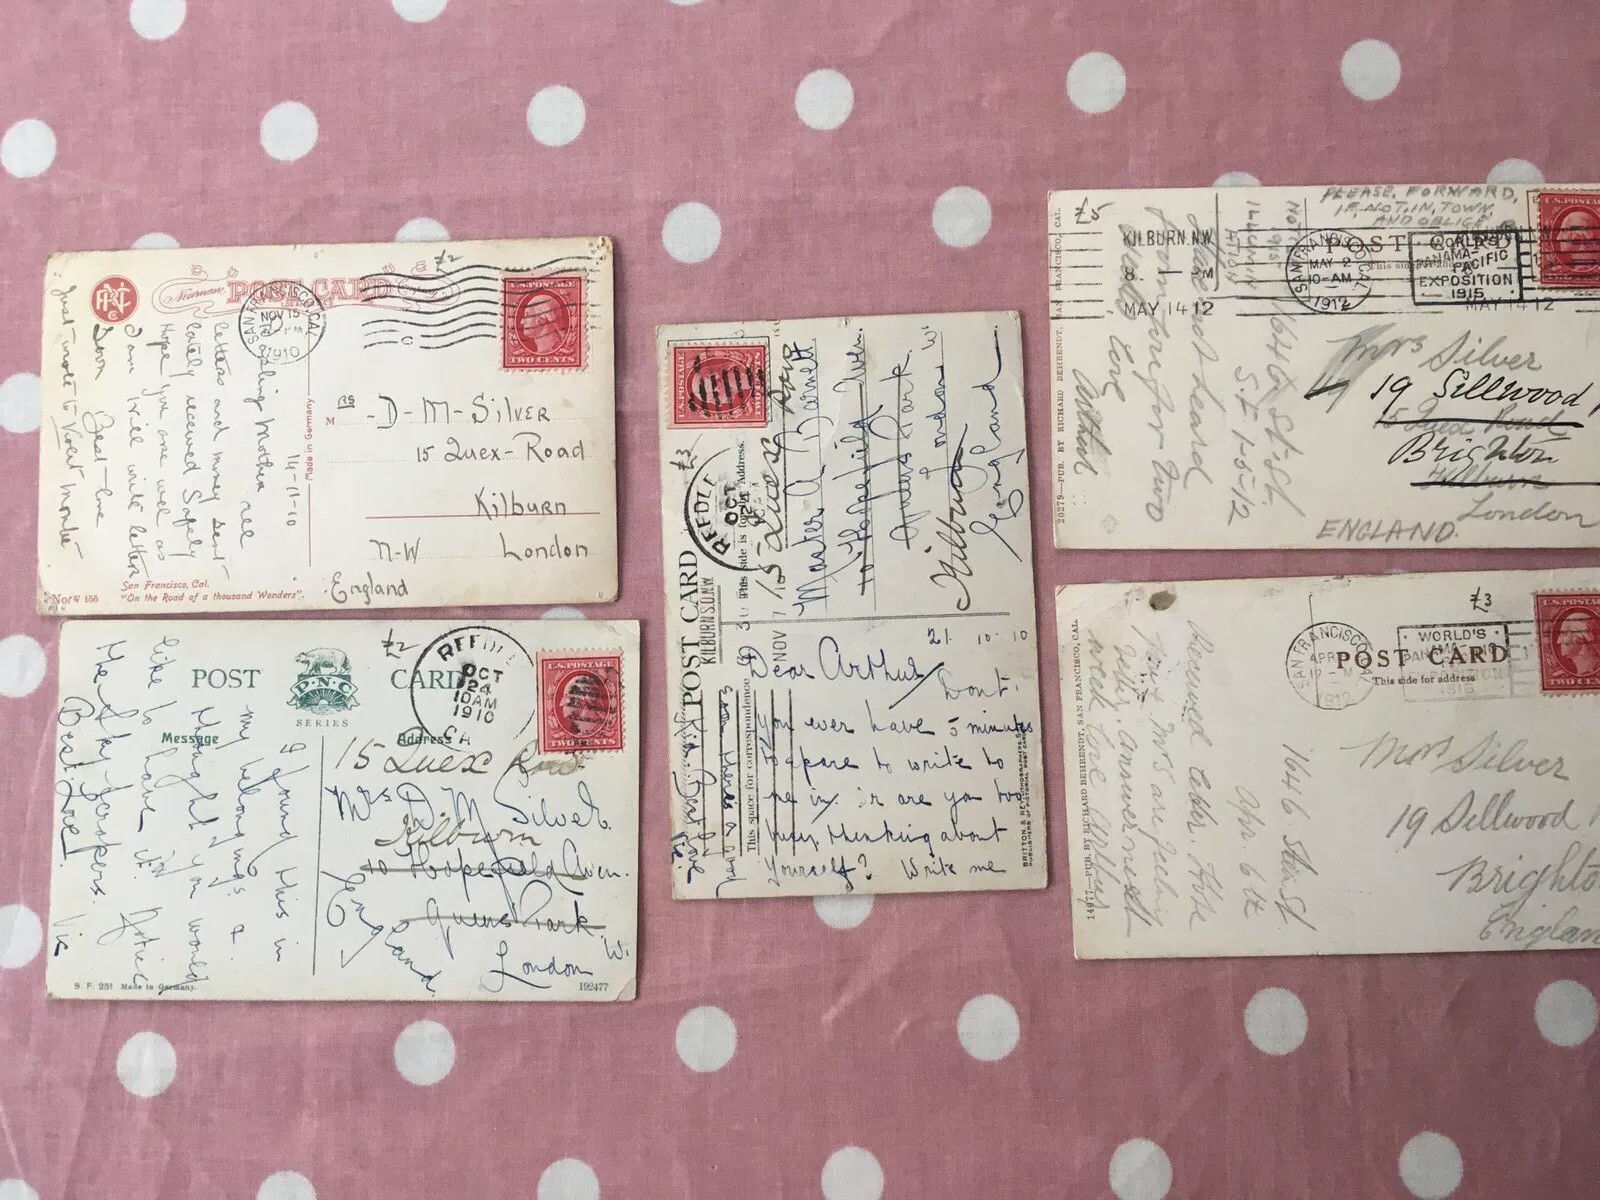 £2
Newman POST CARD
SAN FRANCISCO, CAL.
NOV 15
PM
1910
U.S. POSTAGE
TWO CENTS
14-11-10
Darling Mother
letters and
lately received Safely
Hope you are well as
I am Will write letter
Soon Best-love
Made in Germany
M rs -D-M-SILVER
15 Quex-Road
Kilburn
N-W London
England
San Francisco, Cal.
"On the Road of a thousand Wonders".
155
£2
POST CARD
P.N.C.
SERIES
Message
Address
REEDLEY
OCT
24
10AM
1910
CA
U.S. POSTAGE
TWO CENTS
I found this in
my belongings &
thought you would
like to have it. Notice
the Sky-scrapers.
Best Love.
Vic
15 Quex Road
Mrs D. M. Silver.
Kilburn
10 Hopefield Aven.
Queens Park. W.
London
England.
S. F. 251 Made in Germany.
192477
U.S. POSTAGE
£3
REEDLEY
OCT
POST CARD
KILBURN S.O. N.W.
NOV
This space for correspondence
15 Quex Road
Master A Barnett
10 Hopefield Aven.
Queens Park
London W
Kilburn
England
21 10-10
Dear Arthur/Dont
you ever have 5 minutes
to spare to write to
me in, or are you too
busy thinking about
yourself? Write me
£5
PLEASE, FORWARD,
IF, NOT, IN, TOWN,
AND OBLIGE
KILBURN.N.W.
8. AM
MAY 14 12
POST CARD
SAN FRANCISCO, CAL.
MAY 2
10-AM
1912
WORLD'S
PANAMA-PACIFIC
EXPOSITION
1915
MAY 14 12
U.S. POSTAGE
1646 St. St.
S.F. 1-5-12
from you for two
weeks
Love
Arthur
Mrs Silver
19 Sillwood
15 Quex Road
Brighton
Kilburn
London
ENGLAND.
20279—PUB. BY RICHARD BEHRENDT, SAN FRANCISCO, CAL.
£3
POST CARD
This side for address
SAN FRANCISCO, CAL.
APR
1912
WORLD'S
PANAMA-PACIFIC
1915
U.S. POSTAGE
TWO CENTS
1646 St.
Apr. 6th
Received letter. Hope
you & Mrs are feeling
better. Answer next
week Love Arthur
Mrs Silver
19 Sillwood
Brighton
England
PUB. BY RICHARD BEHRENDT, SAN FRANCISCO, CAL.